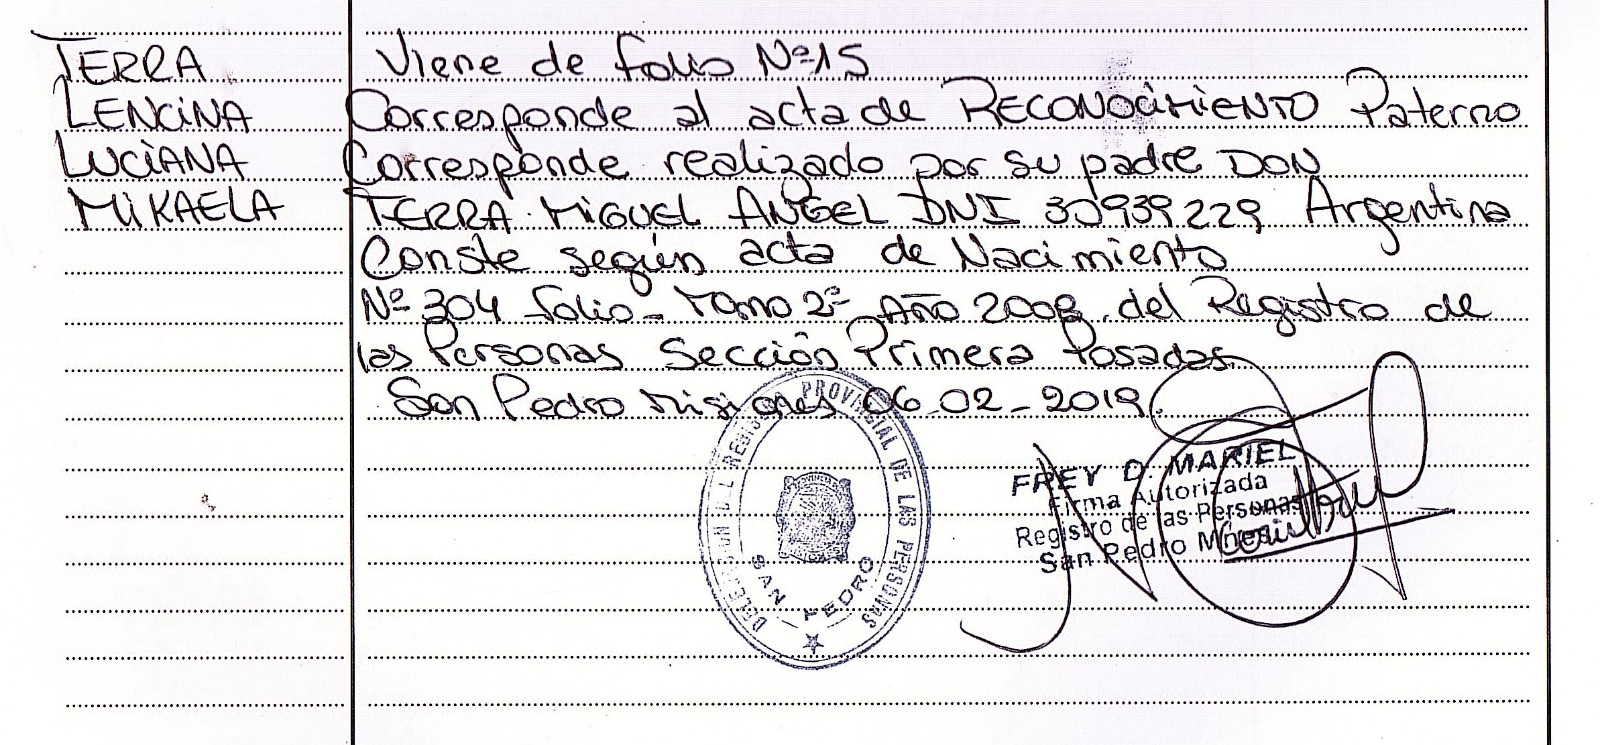 TERRA
LENCINA
LUCIANA
MIKAELA
Viene de folio Nº15
Corresponde al acta de RECONOCIMIENTO Paterno
Corresponde realizado por su padre DON
TERRA MIGUEL ANGEL DNI 30939229 Argentina
Conste según acta de Nacimiento
Nº 304 folio - Tomo 2º Año 2008 del Registro de
las Personas Sección Primera Posadas
San Pedro Misiones 06-02-2019.
DELEGACION DEL REGISTRO PROVINCIAL DE LAS PERSONAS
SAN PEDRO
FREY D. MARIEL
Firma Autorizada
Registro de las Personas
San Pedro Mnes